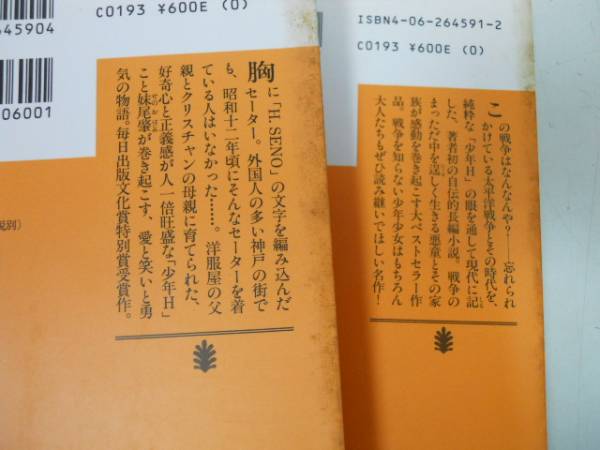 645904
C0193 ¥600E (0)
06001
税別)
胸に「H. SENO」の文字を編み込んだ
セーター。外国人の多い神戸の街で
も、昭和十二年頃にそんなセーターを着
ている人はいなかった……。洋服屋の父
親とクリスチャンの母親に育てられた、
好奇心と正義感が人一倍旺盛な「少年H」
こと妹尾肇が巻き起こす、愛と笑いと勇
せのおはじめ
気の物語。毎日出版文化賞特別賞受賞作。
ISBN4-06-264591-2
C0193 ¥600E (0)
この戦争はなんなんや?――忘れられ
かけている太平洋戦争とその時代を、
純粋な「少年H」の眼を通して現代に記
した、著者初の自伝的長編小説。戦争の
まっただ中を逞しく生きる悪童とその家
族が感動を巻き起こす大ベストセラー作
品。戦争を知らない少年少女はもちろん
大人たちもぜひ読み継いでほしい名作!